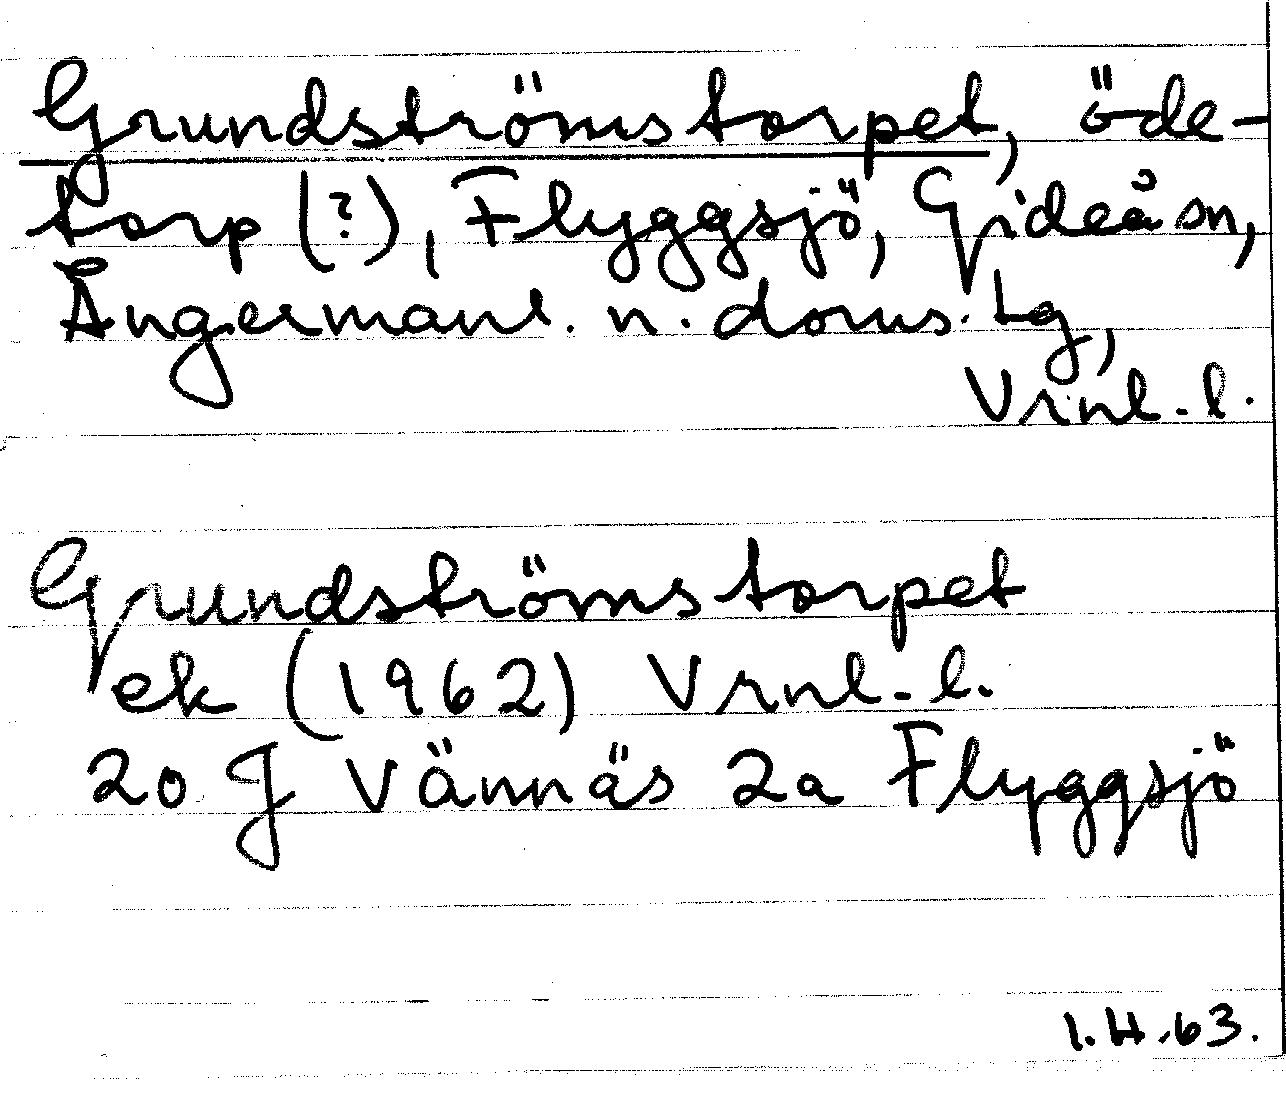 Grundströmstorpet, öde-
torp (?), Flyggsjö, Gideå sn,
Ångermanl. n. doms. tg,
Vrnl.-l.
Grundströmstorpet
ek (1962) Vrnl.-l.
20 J Vännäs 2a Flyggsjö
1.4.63.